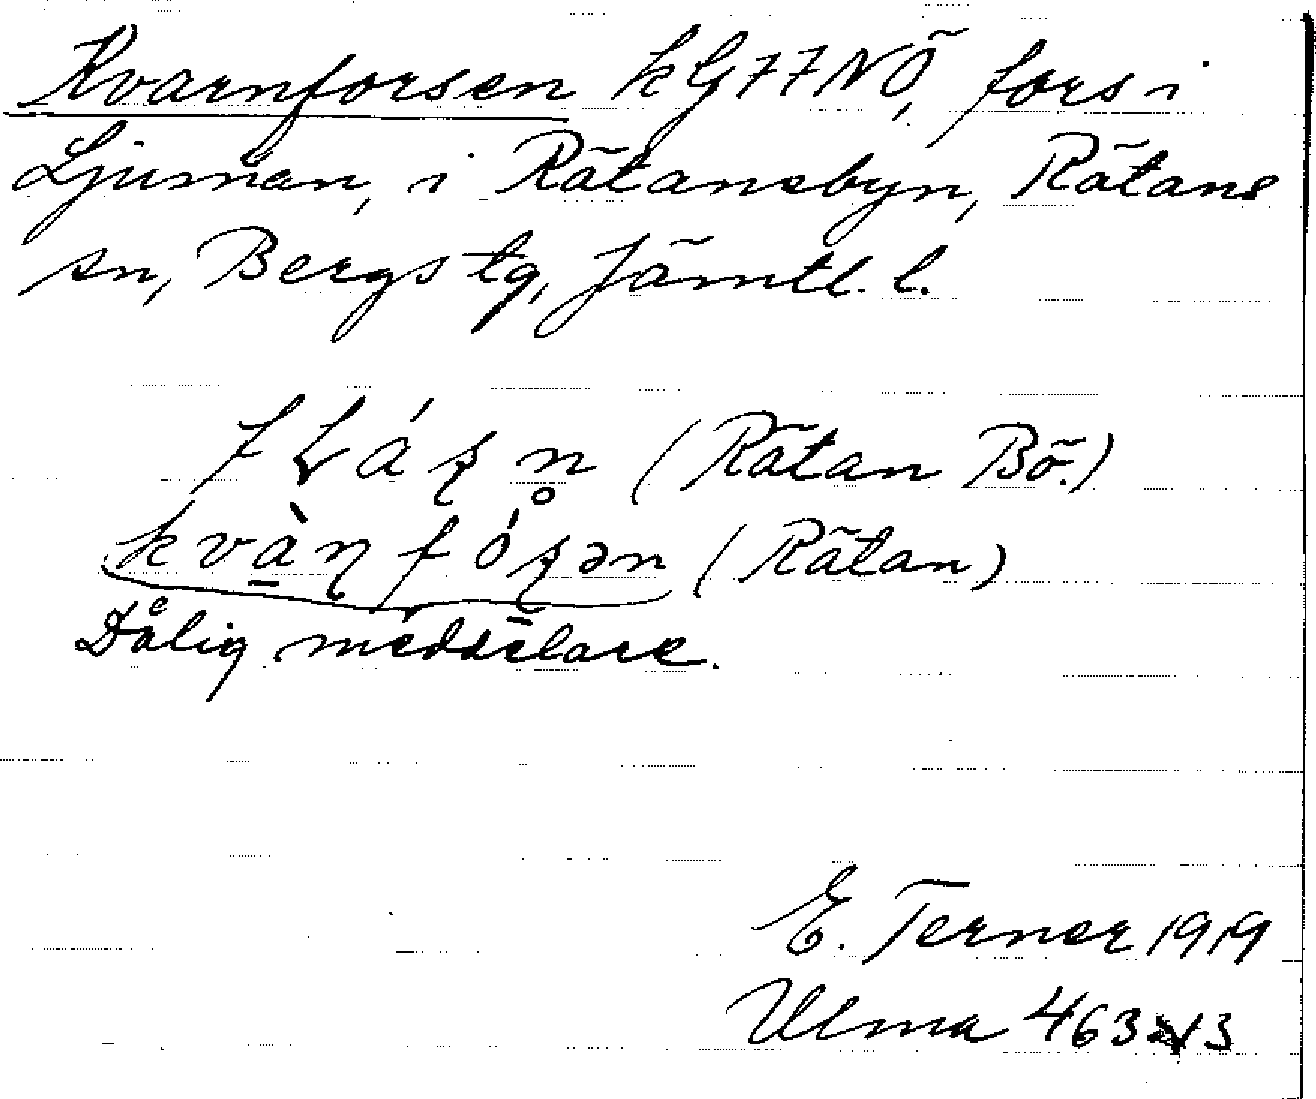 Kvarnforsen kG77NÖ, fors i
Ljusnan, i Rätansbyn, Rätans
sn, Bergs tg, Jämtl. l.
(Rätan Bö.)
kvànfósən (Rätan)
Dålig meddelare.
E. Terner 1919
Ulma 463 13